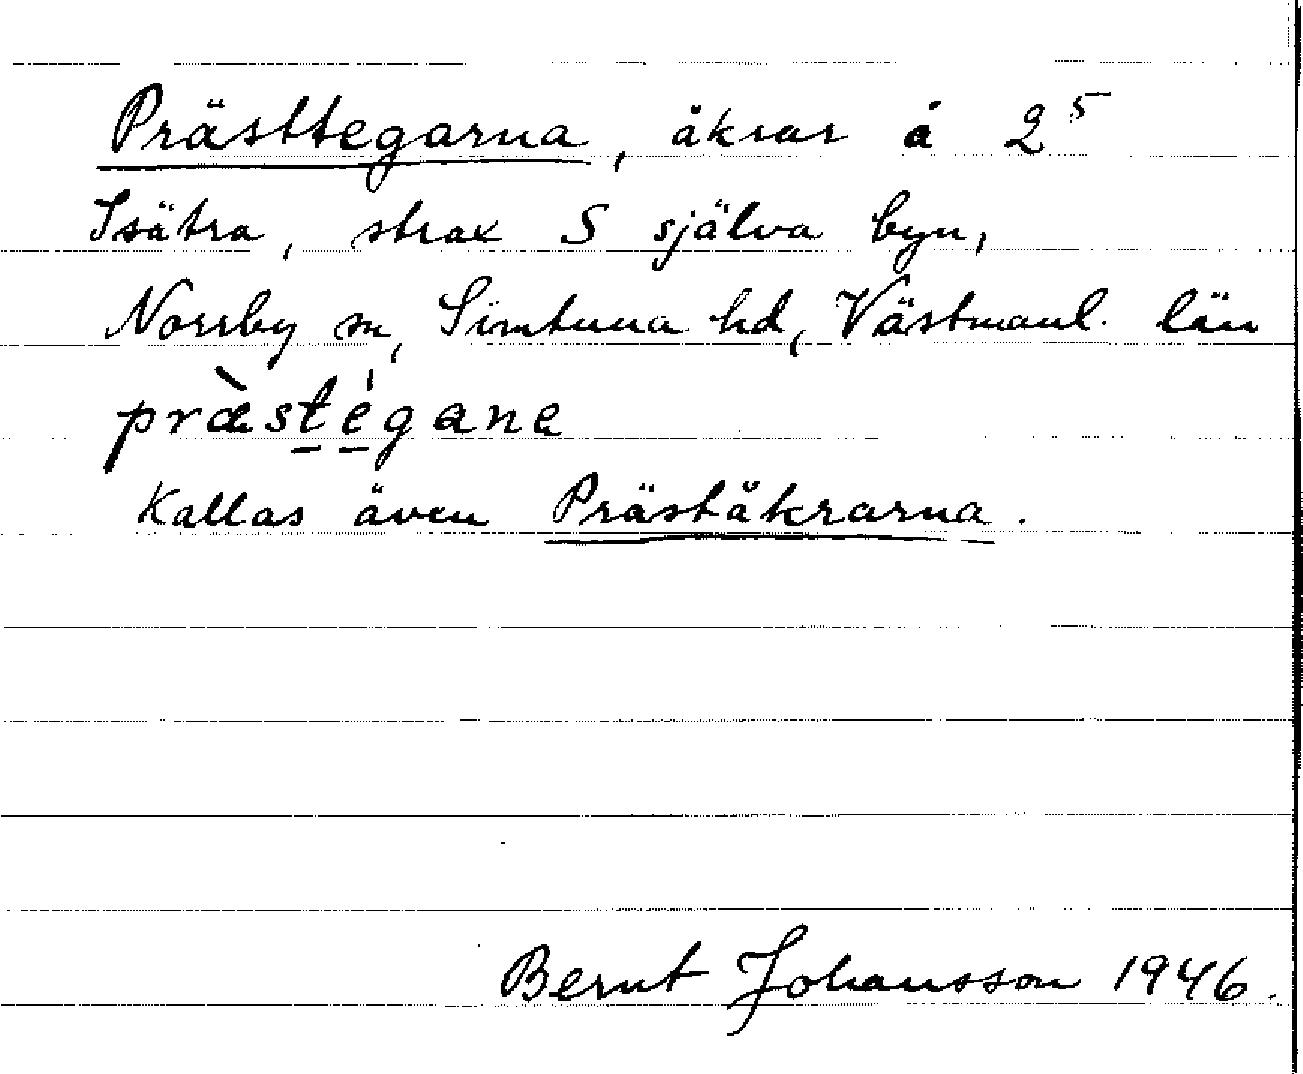 Prästtegarna, åkrar å 2⁵
Isätra, strax S själva byn,
Norrby sn, Simtuna hd, Västmanl. län
præ̀stégane
Kallas även Präståkrarna.
Bernt Johansson 1946.